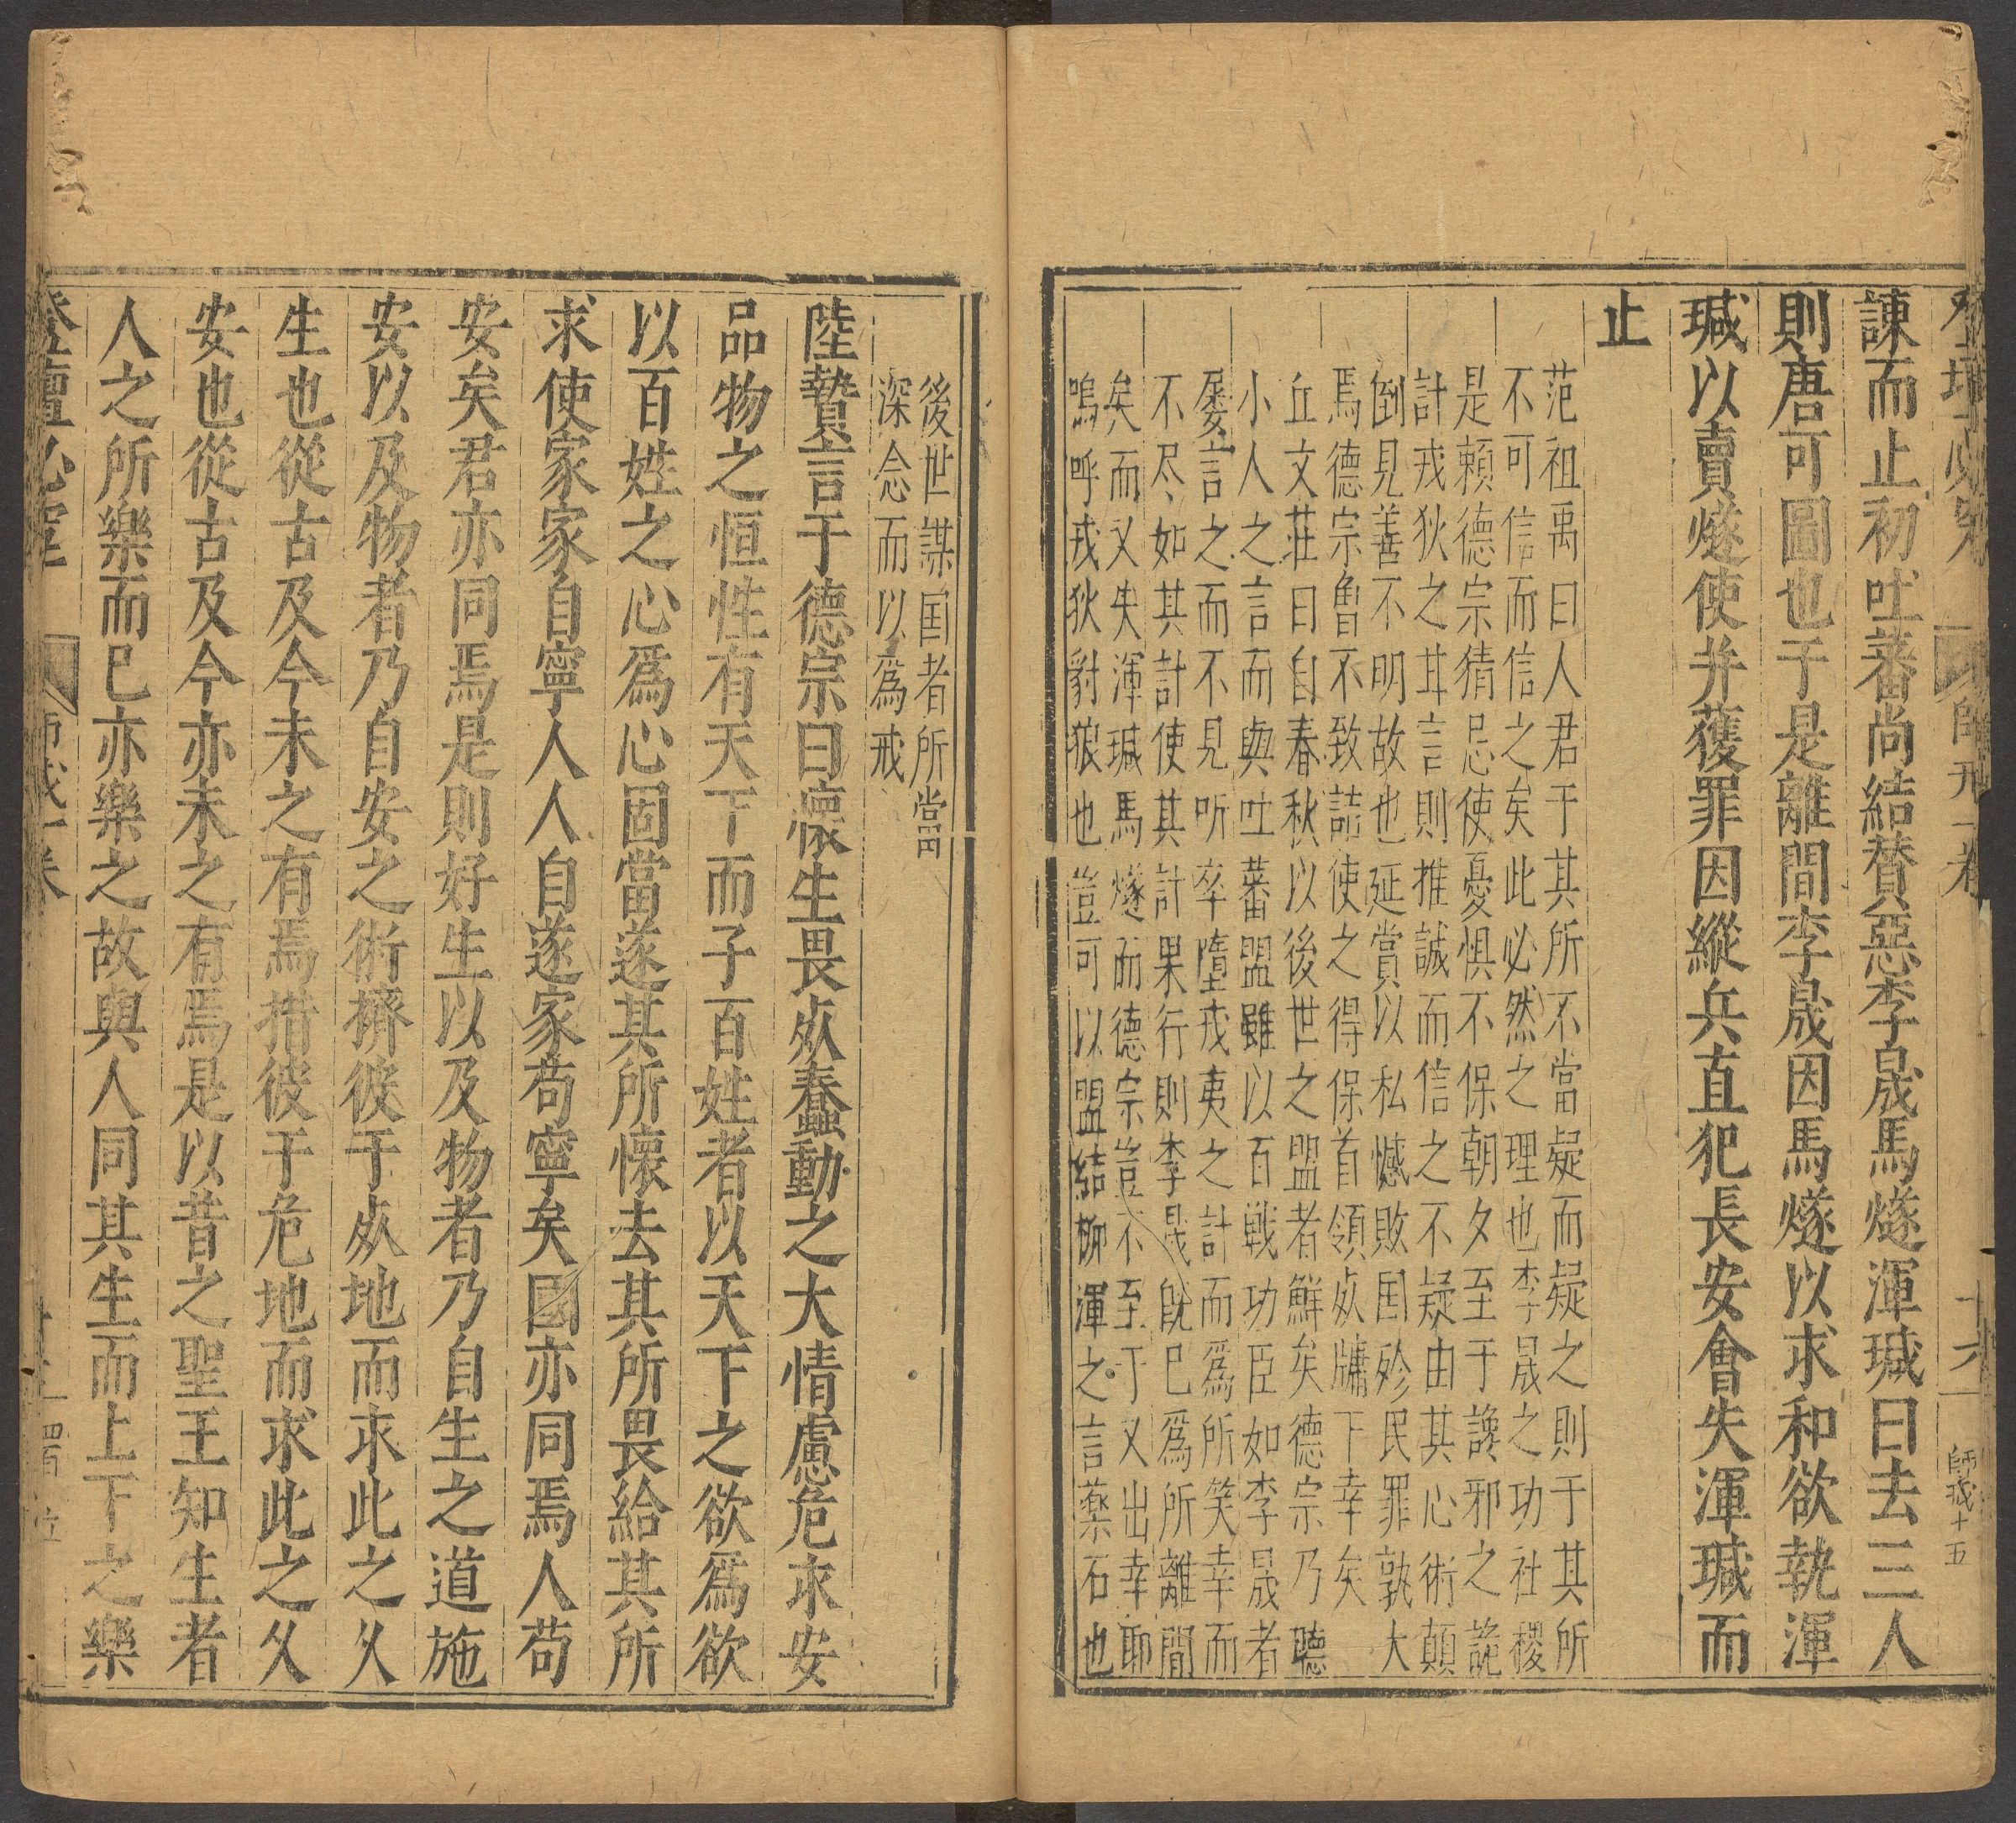 諫而止初吐蕃尚結賛惡李晟馬燧渾瑊曰去三人
則唐可圖也于是離間李晟因馬燧以求和欲執渾
瑊以賣燧使并獲罪因縱兵直犯長安會失渾瑊而
止
范祖禹曰人君于其所不當疑而疑之則于其所
不可信而信之矣此必然之理也李晟之功社稷
是賴德宗猜忌使憂惧不保朝夕至于讒邪之詭
計戎狄之甘言則推誠而信之不疑由其心術顛
倒見善不明故也延賞以私憾敗囯殄民罪孰大
焉德宗魯不致詰使之得保首領㱔牖下幸矣
丘文荘曰自春秋以後世之盟者鮮矣德宗乃聽
小人之言而與吐蕃盟雖以百戦功臣如李晟者
屡言之而不見听卒墮戎夷之計而爲所笑幸而
不尽如其計使其計果行則李晟既已爲所離間
矣而又失渾瑊馬燧而德宗豈不至丁又出幸耶
嗚呼戎狄豺狼也豈可以盟結柳渾之言藥石也
後世謀囯者所當
深念而以爲戒
陸贄言于德宗曰懷生畏㱔蠢動之大情慮危求安
品物之恒性有天下而子百姓者以天下之欲爲欲
以百姓之心爲心固當遂其所懷去其所畏給其所
求使家家自寧人人自遂家苟寧矣國亦同焉人苟
安矣君亦同焉是則好生以及物者乃自生之道施
安以及物者乃自安之術擠彼于㱔地而求此之久
生也從古及今未之有焉措彼于危地而求此之久
安也從古及今亦未之有焉是以昔之聖王知生者
人之所樂而已亦樂之故與人同其生而上下之樂
師戎十五